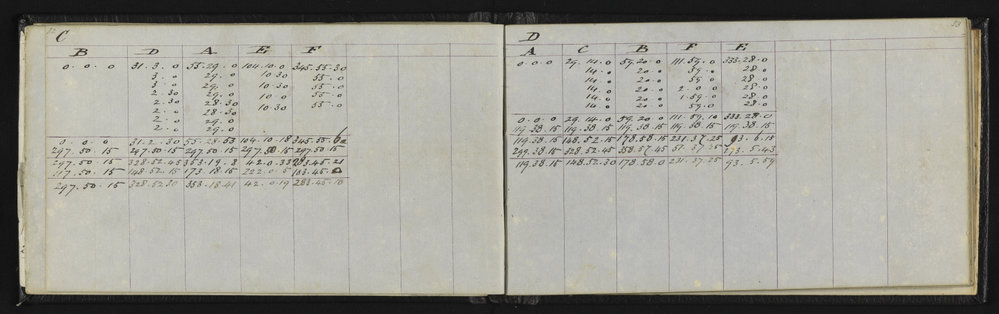 C
B D A E F
0 . 0 . 0 31 . 3 . 0 55 . 29 . 0 104 . 10 . 0 345 . 55 . 30
3 . 0 29 . 0 10 . 30 55 . 0
3 . 0 29 . 0 10 . 30 55 . 0
2 . 30 29 . 0 10 . 0 55 . 0
2 . 30 28 . 30 10 . 30 55 . 0
2 . 0 28 . 30
2 . 0 29 . 0
0 . 0 . 0 31 . 2 . 30 55 . 28 . 53 104 . 10 . 18
297 . 50 . 15 297 . 50 . 15 297 . 50 . 15 297 . 50 . 15 297 . 50 . 15
297 . 50 . 15 328 . 52 . 45 353 . 19 . 8 42 . 0 . 33 . 45 . 21
117 . 50 . 15 148 . 52 . 15 173 . 18 . 15 222 . 0 . 5 103 . 45 . 0
297 . 50 . 15 328 . 52 . 30 353 . 18 . 41 42 . 0 . 19 283 . 45 . 10
D
A C B F E
0 . 0 . 0 29 . 14 . 0 59 . 20 . 0 111 . 59 . 0 333 . 28 . 0
14 . 0 20 . 0 59 . 0 28 . 0
14 . 0 20 . 0 59 . 0 28 . 0
14 . 0 20 . 0 2 . 0 . 0 28 . 0
14 . 0 20 . 0 1 . 59 . 0 28 . 0
14 . 0 20 . 0 59 . 0 28 . 0
0 . 0 . 0 29 . 14 . 0 59 . 20 . 0 111 . 59 . 10 333 . 28 . 0
119 . 38 . 15 119 . 38 . 15 119 . 38 . 15 119 . 38 . 15 119 . 38 . 15
119 . 38 . 15 148 . 52 . 15 178 . 58 . 15 231 . 37 . 25 93 . 6 . 15
299 . 38 . 15 328 . 52 . 45 358 . 57 . 45 51 . 37 . 25 273 . 5 . 43
119 . 38 . 15 148 . 52 . 30 178 . 58 . 0 231 . 37 . 25 93 . 5 . 59